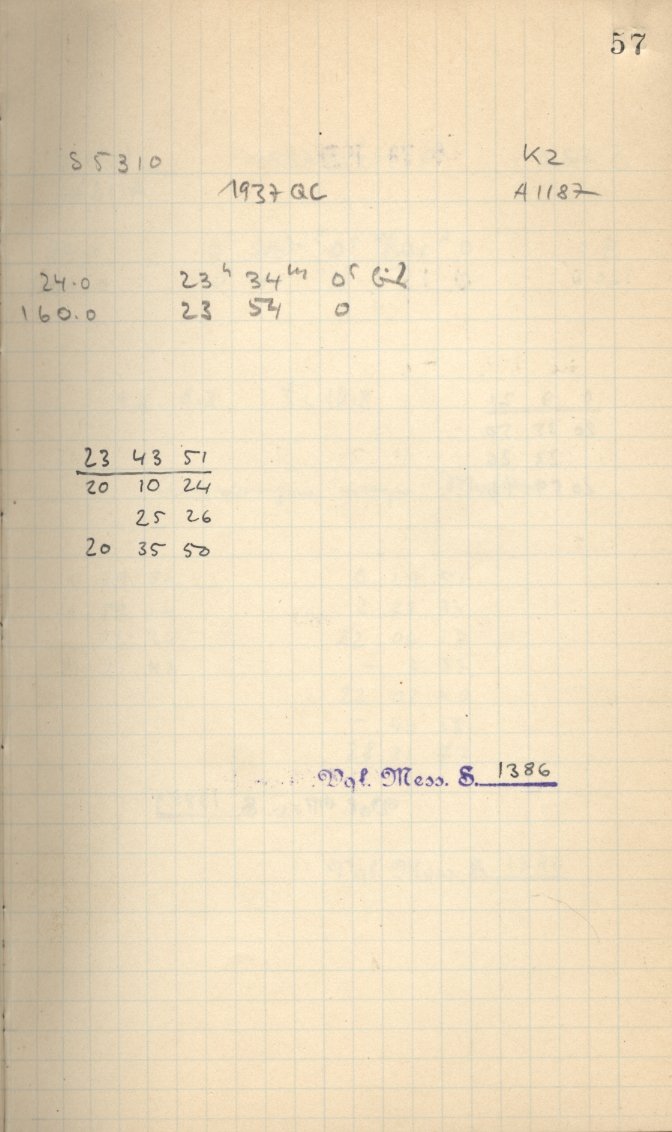 57
S 5310 K2
1937 QC A 1187
24.0 23h 34m 0s
160.0 23 54 0
23 43 51
20 10 24
25 26
20 35 50
Vgl. Mess. S. 1386